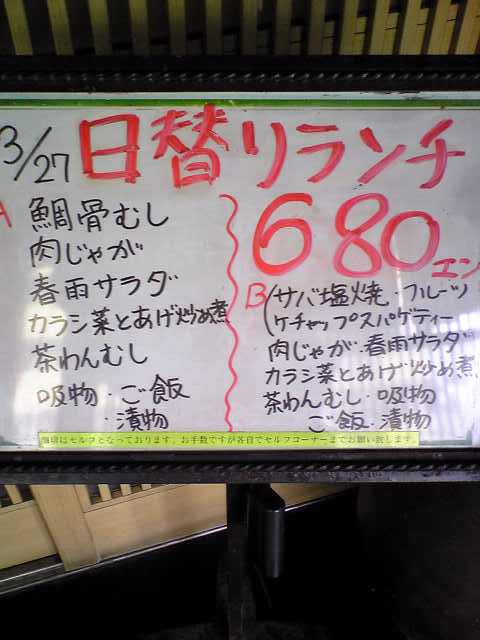 3/27 日替リランチ
680エン
A 鯛骨むし
肉じゃが
春雨サラダ
カラシ菜とあげ炒め煮
茶わんむし
吸物・ご飯
・漬物
B (サバ塩焼・フルーツ
ケチャップスパゲティー
肉じゃが・春雨サラダ
カラシ菜とあげ炒め煮
茶わんむし・吸物
ご飯・漬物
珈琲はセルフとなっております。お手数ですが各自でセルフコーナーまでお願い致します。